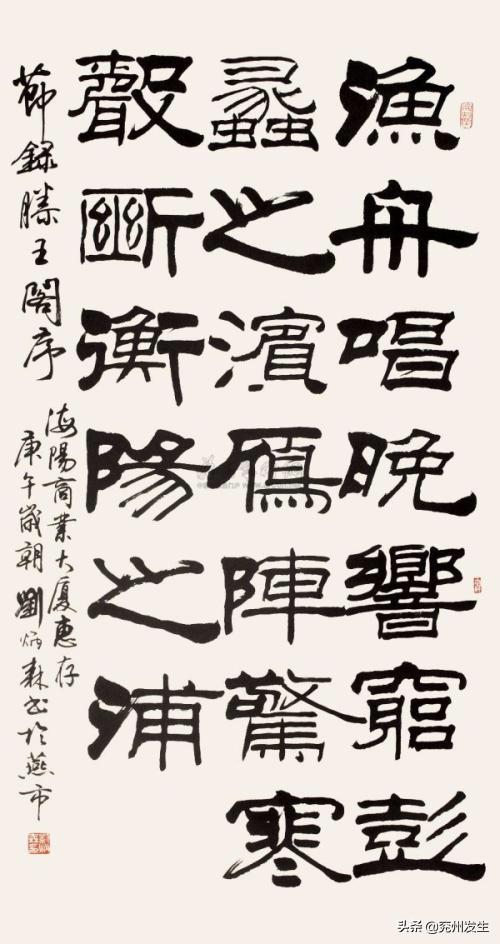 漁舟唱晚響窮彭
蠡之濱鴈陣驚寒
聲斷衡陽之浦
節録滕王閣序
海陽商業大厦惠存
庚午歲朝劉炳森书於燕市
头条@兖州发生